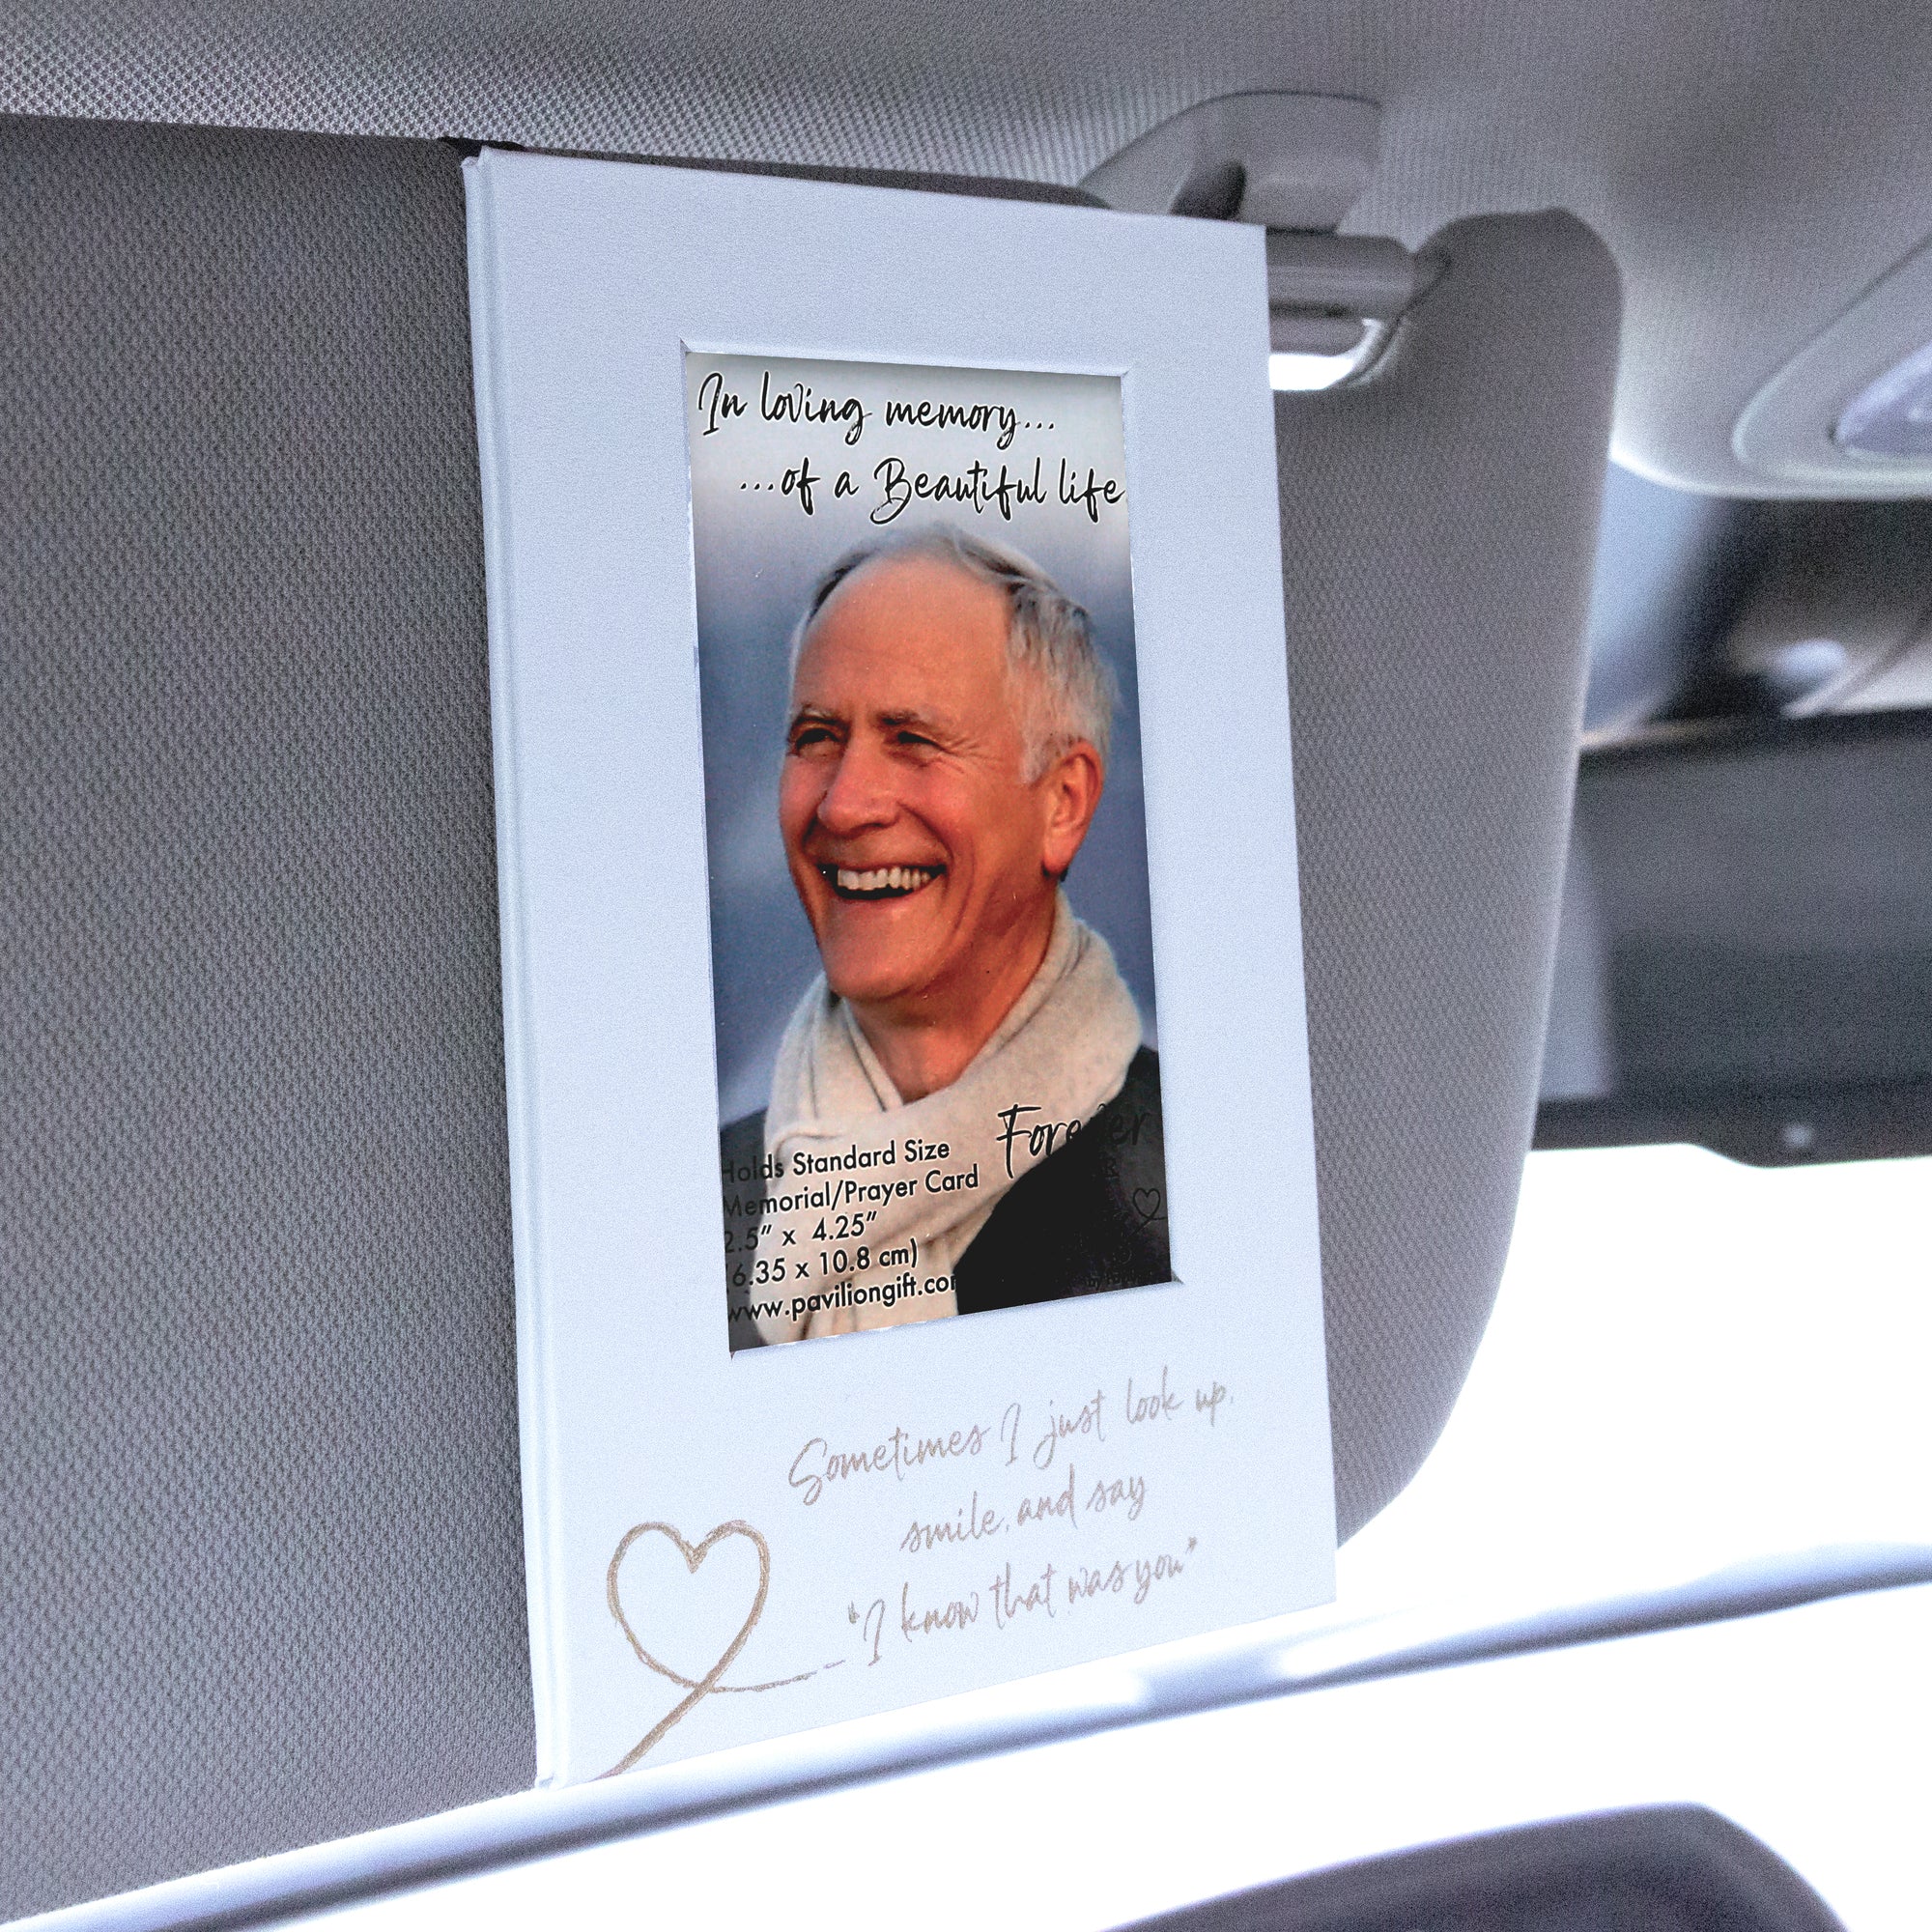 In loving memory...
...of a Beautiful life
Forever
Holds Standard Size
Memorial/Prayer Card
2.5" x 4.25"
6.35 x 10.8 cm)
www.paviliongift.com
Sometimes I just look up,
smile, and say
"I know that was you"